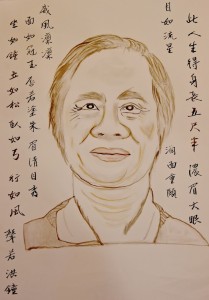 此人生得身長五尺半 濃眉大眼
目如流星
洞面重頤
威風凜凜
面如冠玉 唇若塗朱 眉清目秀
坐如鐘 立如松 臥如弓 行如風 聲若洪鐘